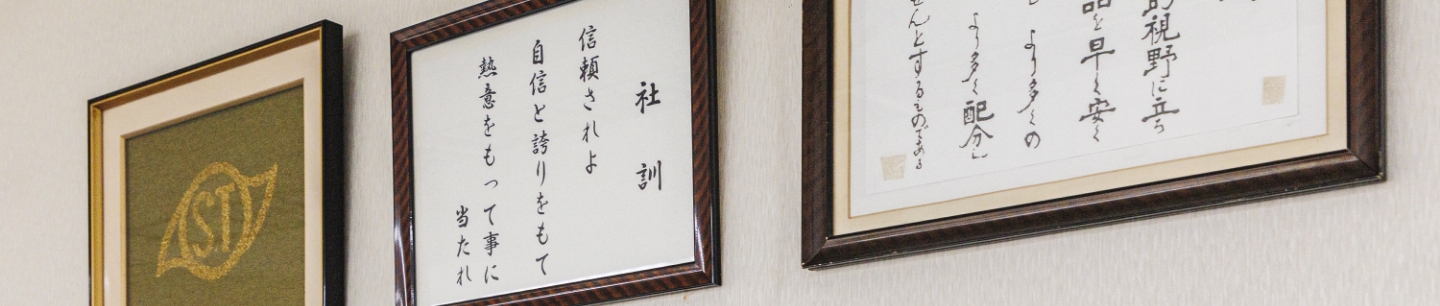 S.T
社訓
信頼されよ
自信と誇りをもて
熱意をもって事に
当たれ
視野に立ち
品を早く安く
より多くの
より多く配分し
せんとするものである